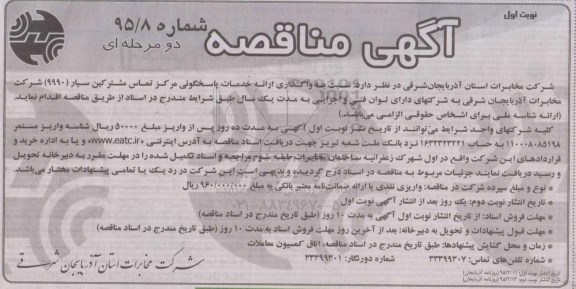 نوبت اول
آگهی مناقصه
شماره ۹۵/۸
دو مرحله ای
شرکت مخابرات استان آذربایجان‌شرقی در نظر دارد نسبت به واگذاری ارائه خدمات پاسخگوئی مرکز تماس مشترکین سیار (۹۹۹۰) شرکت
مخابرات آذربایجان شرقی به شرکتهای دارای توان فنی و اجرایی به مدت یک سال طبق شرایط مندرج در اسناد از طریق مناقصه اقدام نماید.
(ارائه شناسه ملی برای اشخاص حقوقی الزامی می‌باشد.)
کلیه شرکتهای واجد شرایط می‌توانند از تاریخ نشر نوبت اول آگهی به مدت ده روز پس از واریز مبلغ ۵۰۰۰۰ ریال شناسه واریز مستمر
۱۶۳۲۲۲۳۲۲۱ به حساب ۱۱۰۰۰۸۰۸۵۱۹۸ نزد بانک ملت شعبه تبریز جهت دریافت اسناد مناقصه به آدرس اینترنتی www.eatc.ir، و یا به اداره خرید و
قراردادهای این شرکت واقع در اول شهرک زعفرانیه ساختمان مخابرات طبقه سوم مراجعه و اسناد تکمیل شده را در مهلت مقرر به دبیرخانه تحویل
و رسید دریافت نمایند جزئیات مربوط به مناقصه در اسناد درج گردیده و بدیهی است این شرکت در رد یک یا تمامی پیشنهادات مختار می‌باشد.
• نوع و مبلغ سپرده شرکت در مناقصه: واریزی نقدی یا ارائه ضمانت‌نامه معتبر بانکی به مبلغ ۹۶۰/۰۰۰/۰۰۰ ریال
• تاریخ انتشار نوبت دوم: یک روز بعد از انتشار آگهی نوبت اول
• مهلت فروش اسناد: از تاریخ انتشار نوبت اول آگهی به مدت ۱۰ روز (طبق تاریخ مندرج در اسناد مناقصه)
• مهلت قبول پیشنهادات و تحویل به دبیرخانه: بعد از آخرین روز مهلت فروش اسناد به مدت ۱۰ روز (طبق تاریخ مندرج در اسناد مناقصه)
• زمان و محل گشایش پیشنهادها: طبق تاریخ مندرج در اسناد مناقصه، اتاق کمیسیون معاملات
• شماره تلفن‌های تماس: ۳۳۳۹۹۳۰۷ شماره دورنگار: ۳۳۳۹۹۳۰۱
شرکت مخابرات استان آذربایجان شرقی
تاریخ انتشار نوبت اول:
تاریخ انتشار نوبت دوم: